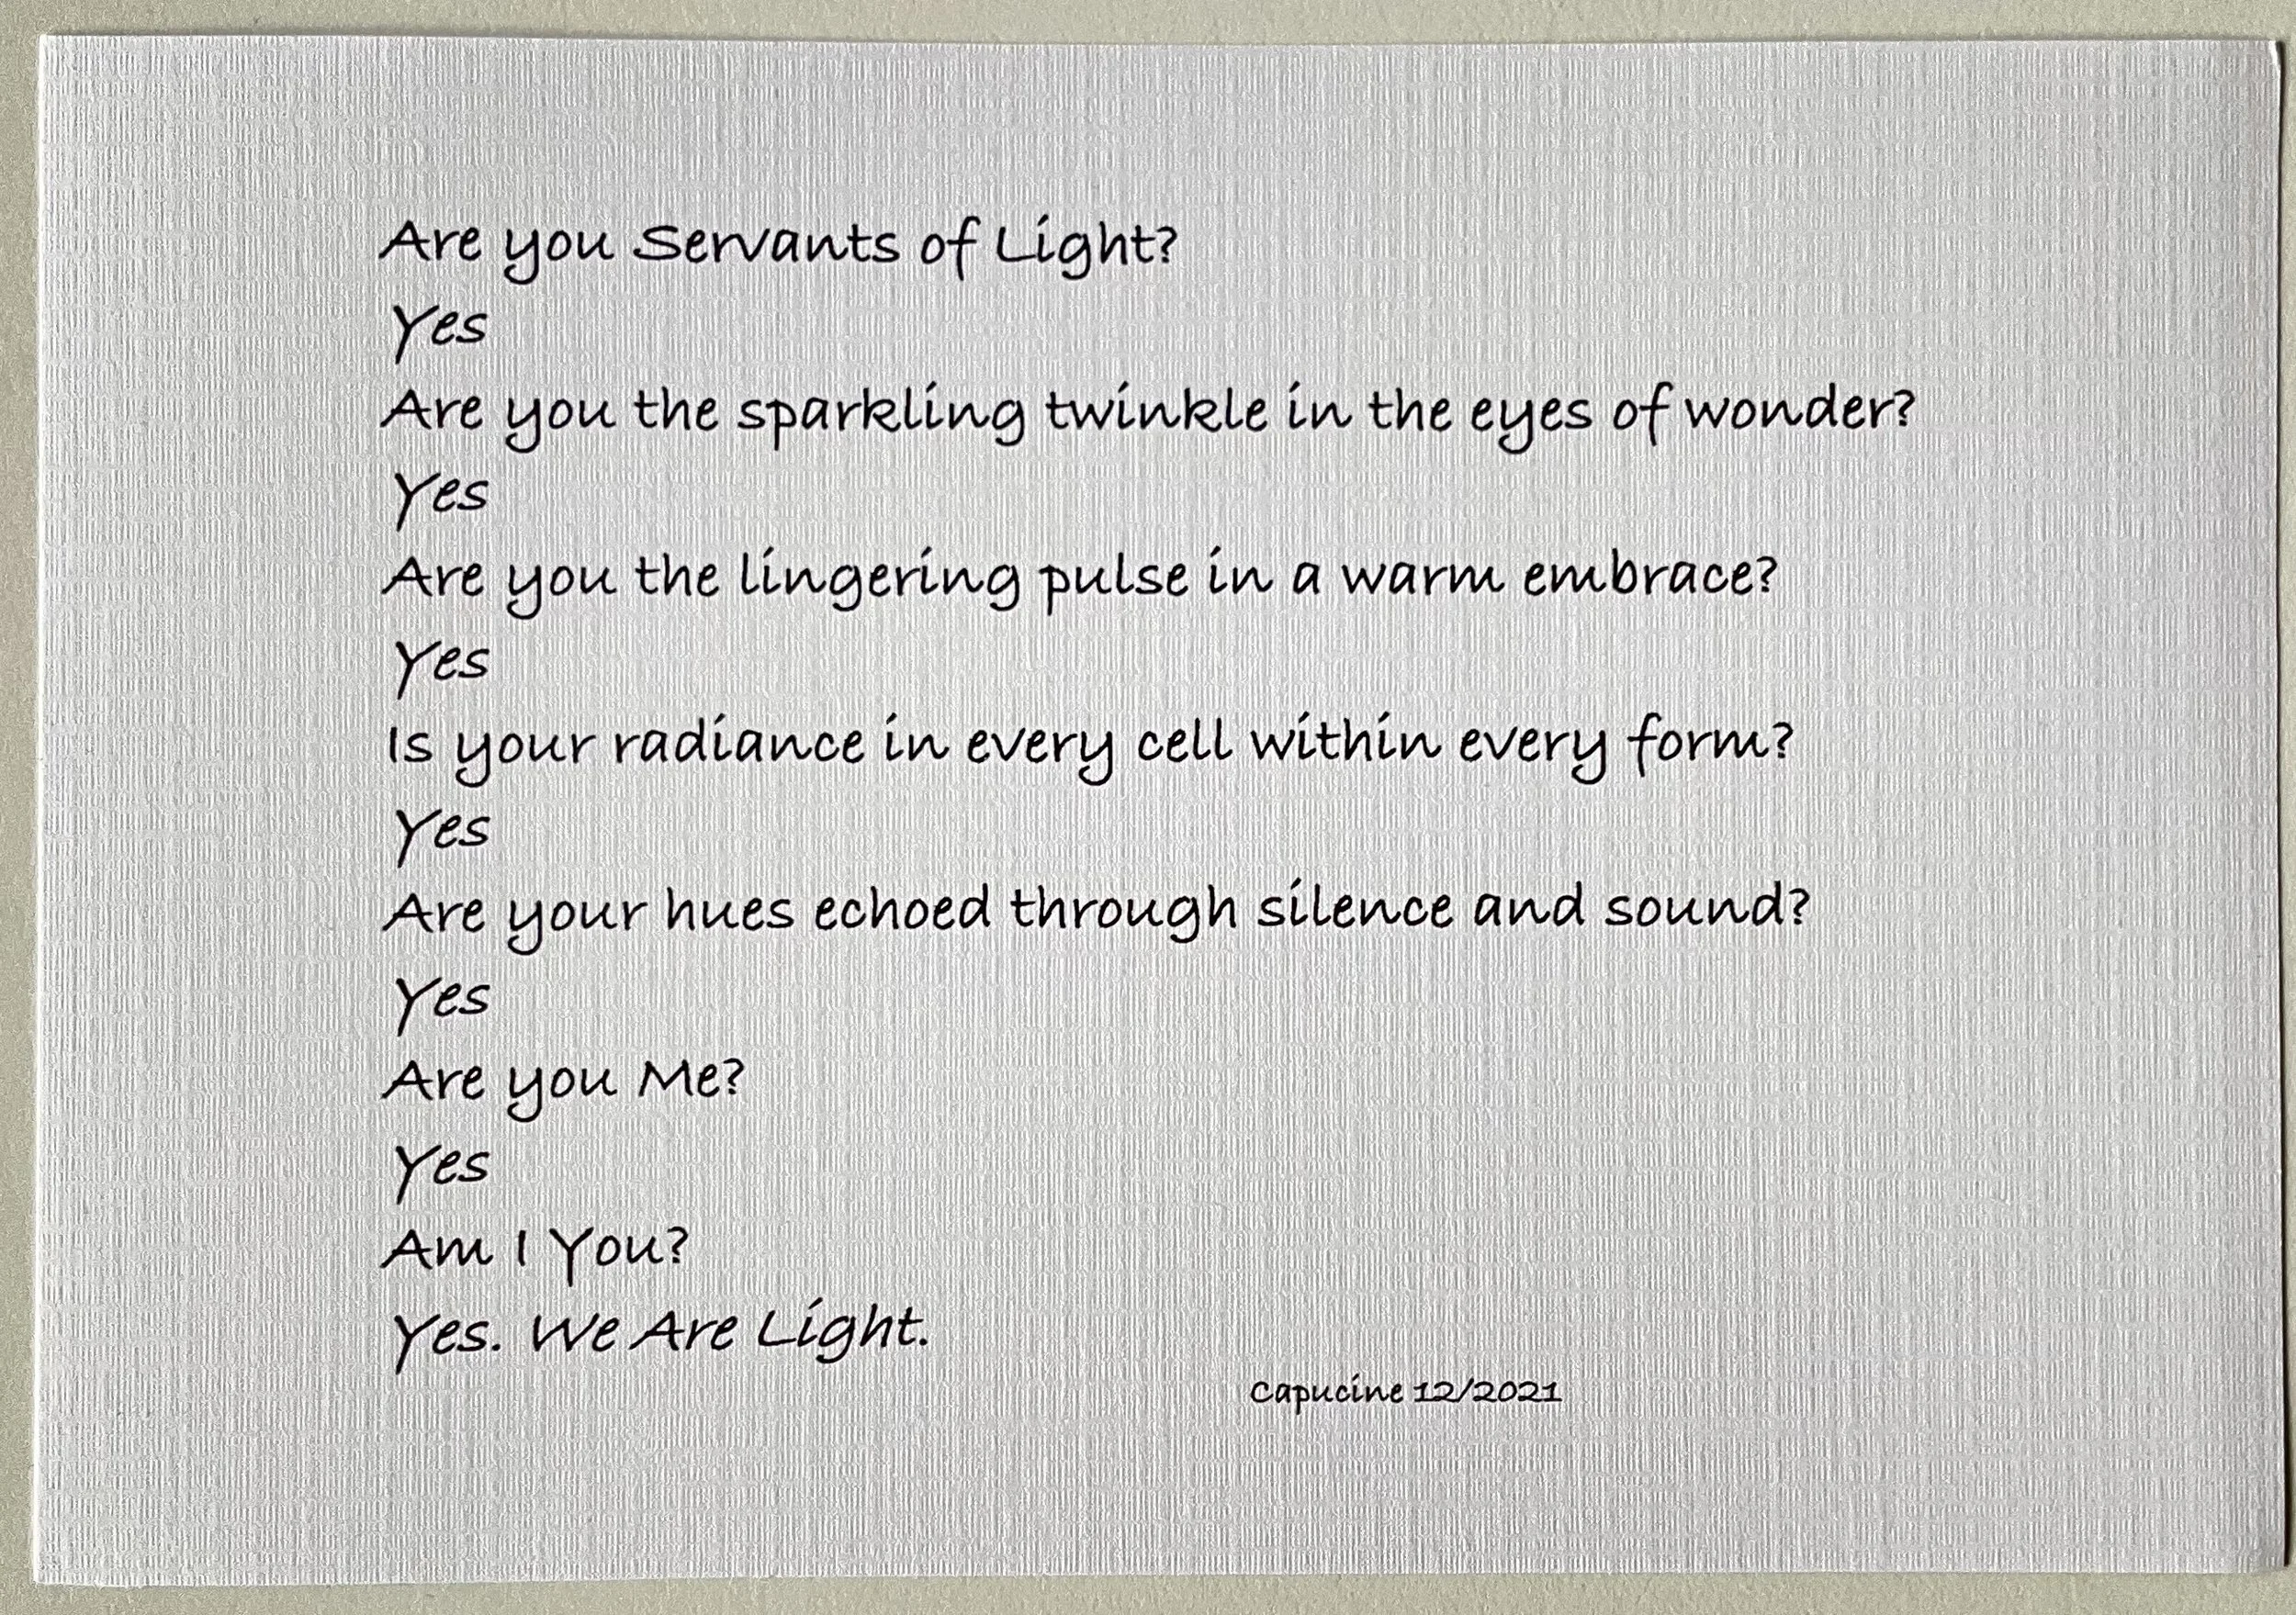 Are you Servants of Light?
Yes
Are you the sparkling twinkle in the eyes of wonder?
Yes
Are you the lingering pulse in a warm embrace?
Yes
Is your radiance in every cell within every form?
Yes
Are your hues echoed through silence and sound?
Yes
Are you Me?
Yes
Am I You?
Yes. We Are Light.
Capucine 12/2021